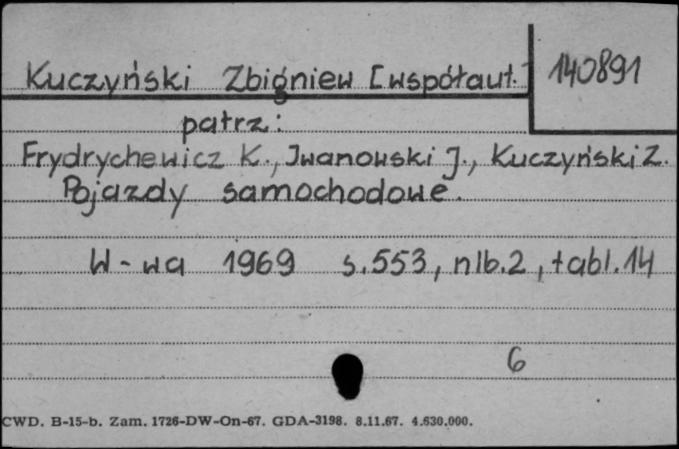 Kuczyński Zbigniew [współaut.]
140891
patrz:
Frydrychewicz K., Iwanowski J., Kuczyński Z.
Pojazdy samochodowe.
W-wa 1969 s.553, nlb.2, tabl.14
6
CWD. B-15-b. Zam. 1726-DW-On-67. GDA-3198. 8.11.67. 4.630.000.